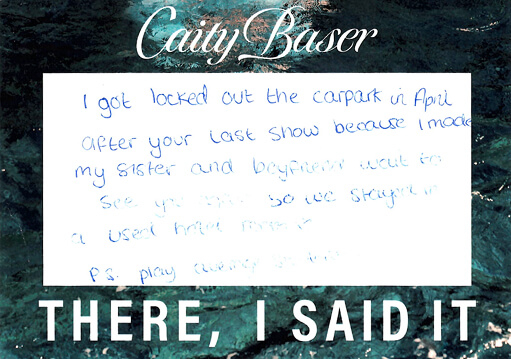 Caity Baser
I got locked out the carpark in April
after your last show because I made
my sister and boyfriend wait to
see you so we stayed in
a used hotel
P.S. play
THERE, I SAID IT